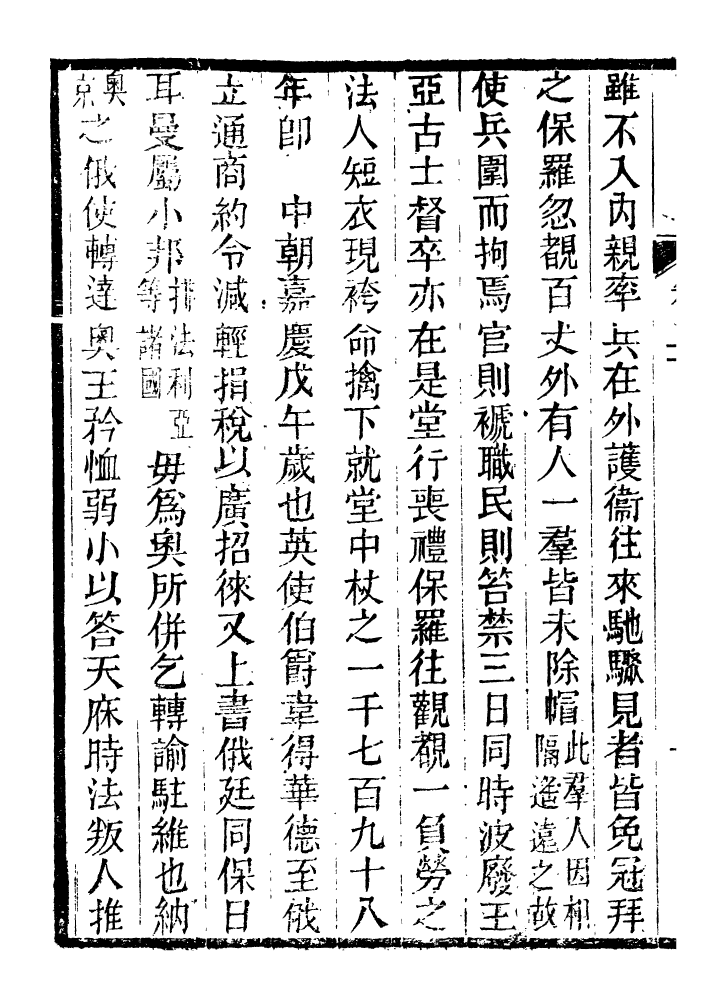 雖不入內親率兵在外護衞往來馳驟見者皆免冠拜
之保羅忽覩百丈外有人一羣皆未除帽此羣人因相隔遙遠之故
使兵圍而拘焉官則褫職民則笞禁三日同時波廢王
亞古士督卒亦在是堂行喪禮保羅往觀覩一負勞之
法人短衣現袴命擒下就堂中杖之一千七百九十八
年卽　中朝嘉慶戊午歲也英使伯爵韋得華德至俄
立通商約令減輕捐稅以廣招徠又上書俄廷同保日
耳曼屬小邦拂法利亞等諸國毋爲奧所併乞轉諭駐維也納
奧京之俄使轉達奧王矜恤弱小以答天庥時法叛人推